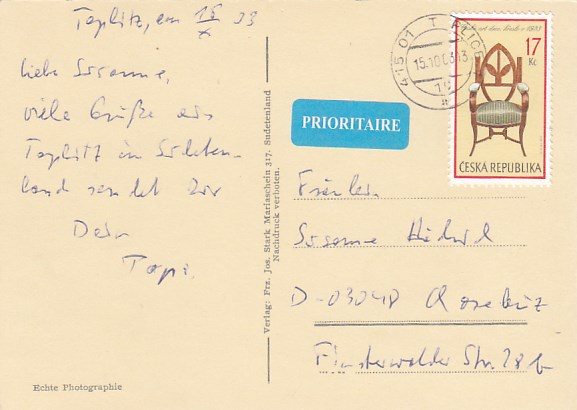 Teplitz, am 15/X 03
Liebe Susanne,
viele Grüße aus
Teplitz im Sudeten-
land sendet Dir
Dein
Papi.
Echte Photographie
Verlag: Frz. Jos. Stark Mariaschein 317. Sudetenland
Nachdruck verboten.
PRIORITAIRE
415 01 T
15.10.03
17
Kč
ČESKÁ REPUBLIKA
Fräulein
Susanne
D-03048
Finsterwalder Str. 28b